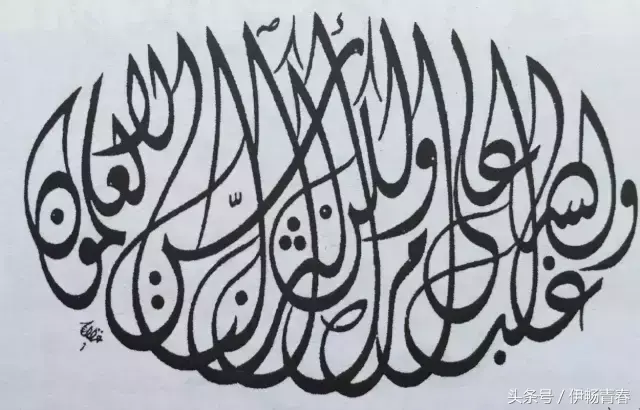 والله غالب على أمره ولكن أكثر الناس لا يعلمون
头条号 / 伊畅青春